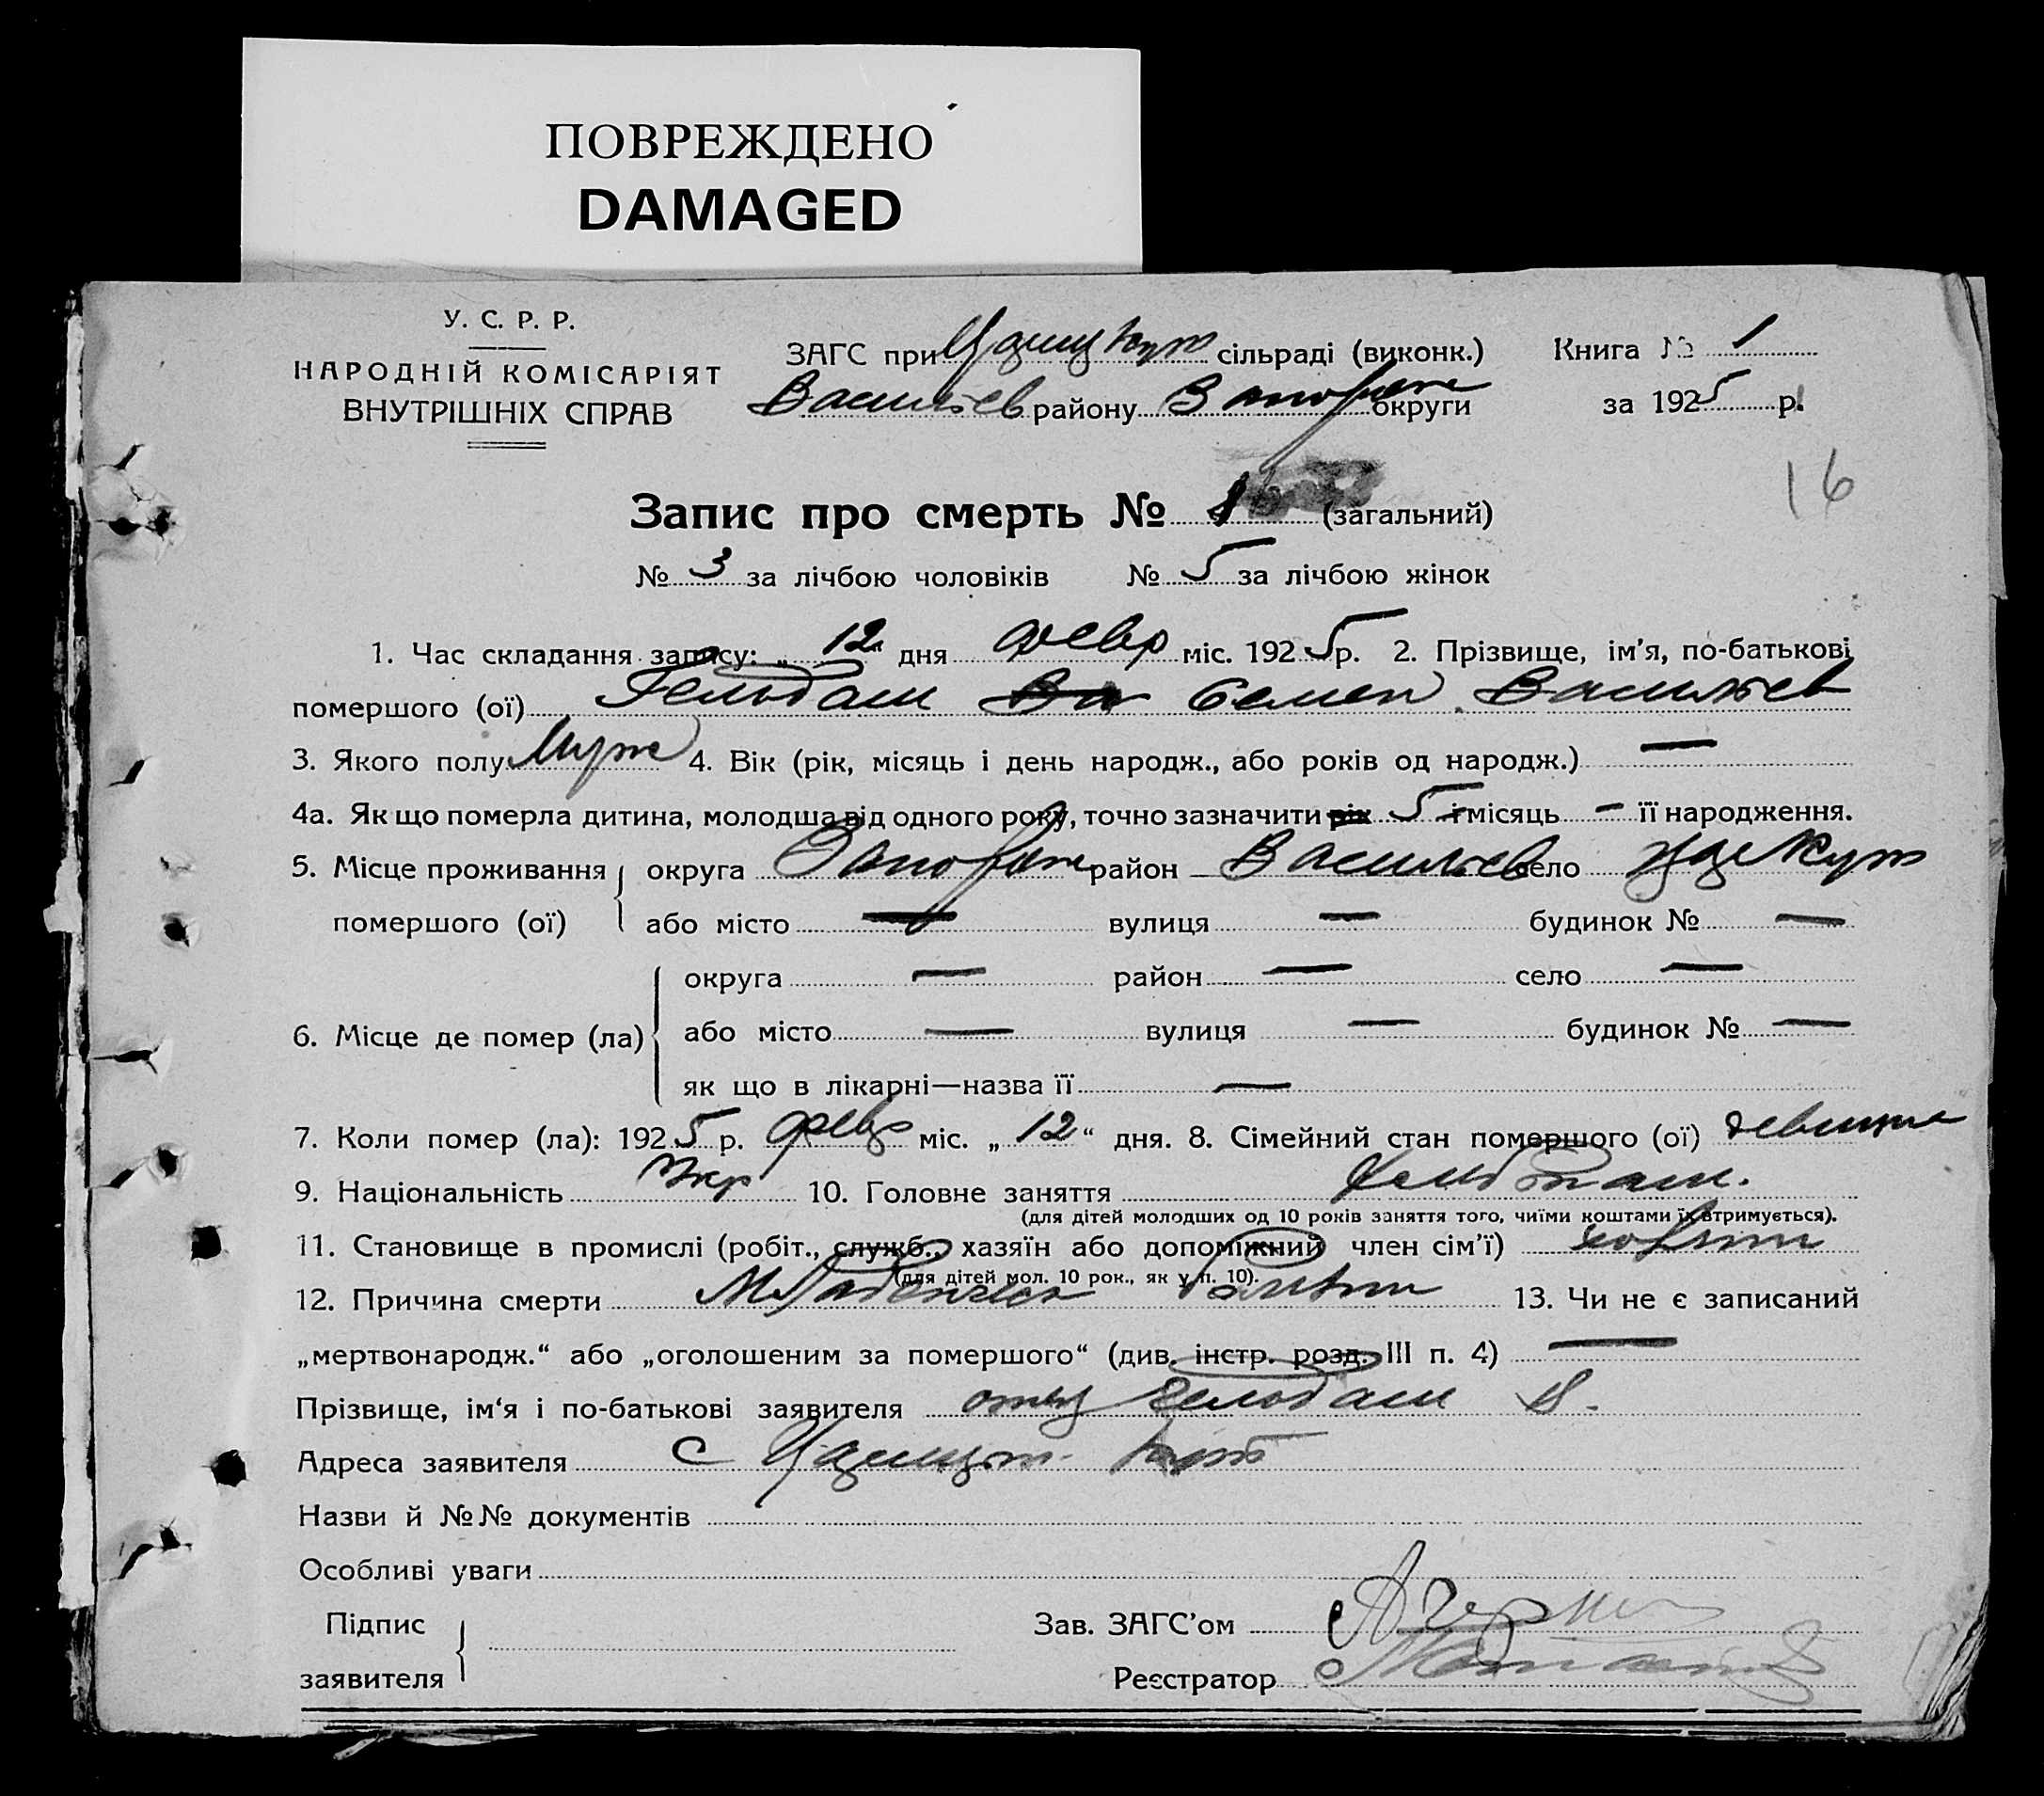 ПОВРЕЖДЕНО
DAMAGED
У. С. Р. Р.
НАРОДНІЙ КОМІСАРІЯТ
ВНУТРІШНІХ СПРАВ
ЗАГС при сільраді (виконк.)
Васильев району Запорож округи
Книга № 1
за 1925 р.
16
Запис про смерть № 8 (загальний)
№ 3 за лічбою чоловіків № 5 за лічбою жінок
1. Час складання запису: „ 12 " дня февр міс. 1925 р. 2. Прізвище, ім'я, по-батькові
помершого (ої) Гельбаш Семен Васильев
3. Якого полу Муж 4. Вік (рік, місяць і день народж., або років од народж.) —
4а. Як що померла дитина, молодша від одного року, точно зазначити рік 5 і місяць — її народження.
5. Місце проживання помершого (ої) округа Запорож район Васильев село
або місто — вулиця — будинок № —
6. Місце де помер (ла) округа — район — село —
або місто — вулиця — будинок № —
як що в лікарні—назва її —
7. Коли помер (ла): 1925 р. февр міс. „ 12 “ дня. 8. Сімейний стан помершого (ої)
9. Національність Укр 10. Головне заняття
(для дітей молодших од 10 років заняття того, чиїми коштами їх втримується).
11. Становище в промислі (робіт., служб., хазяїн або допоміжний член сім'ї)
(для дітей мол. 10 рок., як у п. 10).
12. Причина смерти 13. Чи не є записаний
„мертвонародж.“ або „оголошеним за помершого“ (див. інстр. розд. III п. 4) —
Прізвище, ім‘я і по-батькові заявителя отец Гельбаш В.
Адреса заявителя с
Назви й №№ документів
Особливі уваги
Підпис заявителя
Зав. ЗАГС'ом
Реєстратор